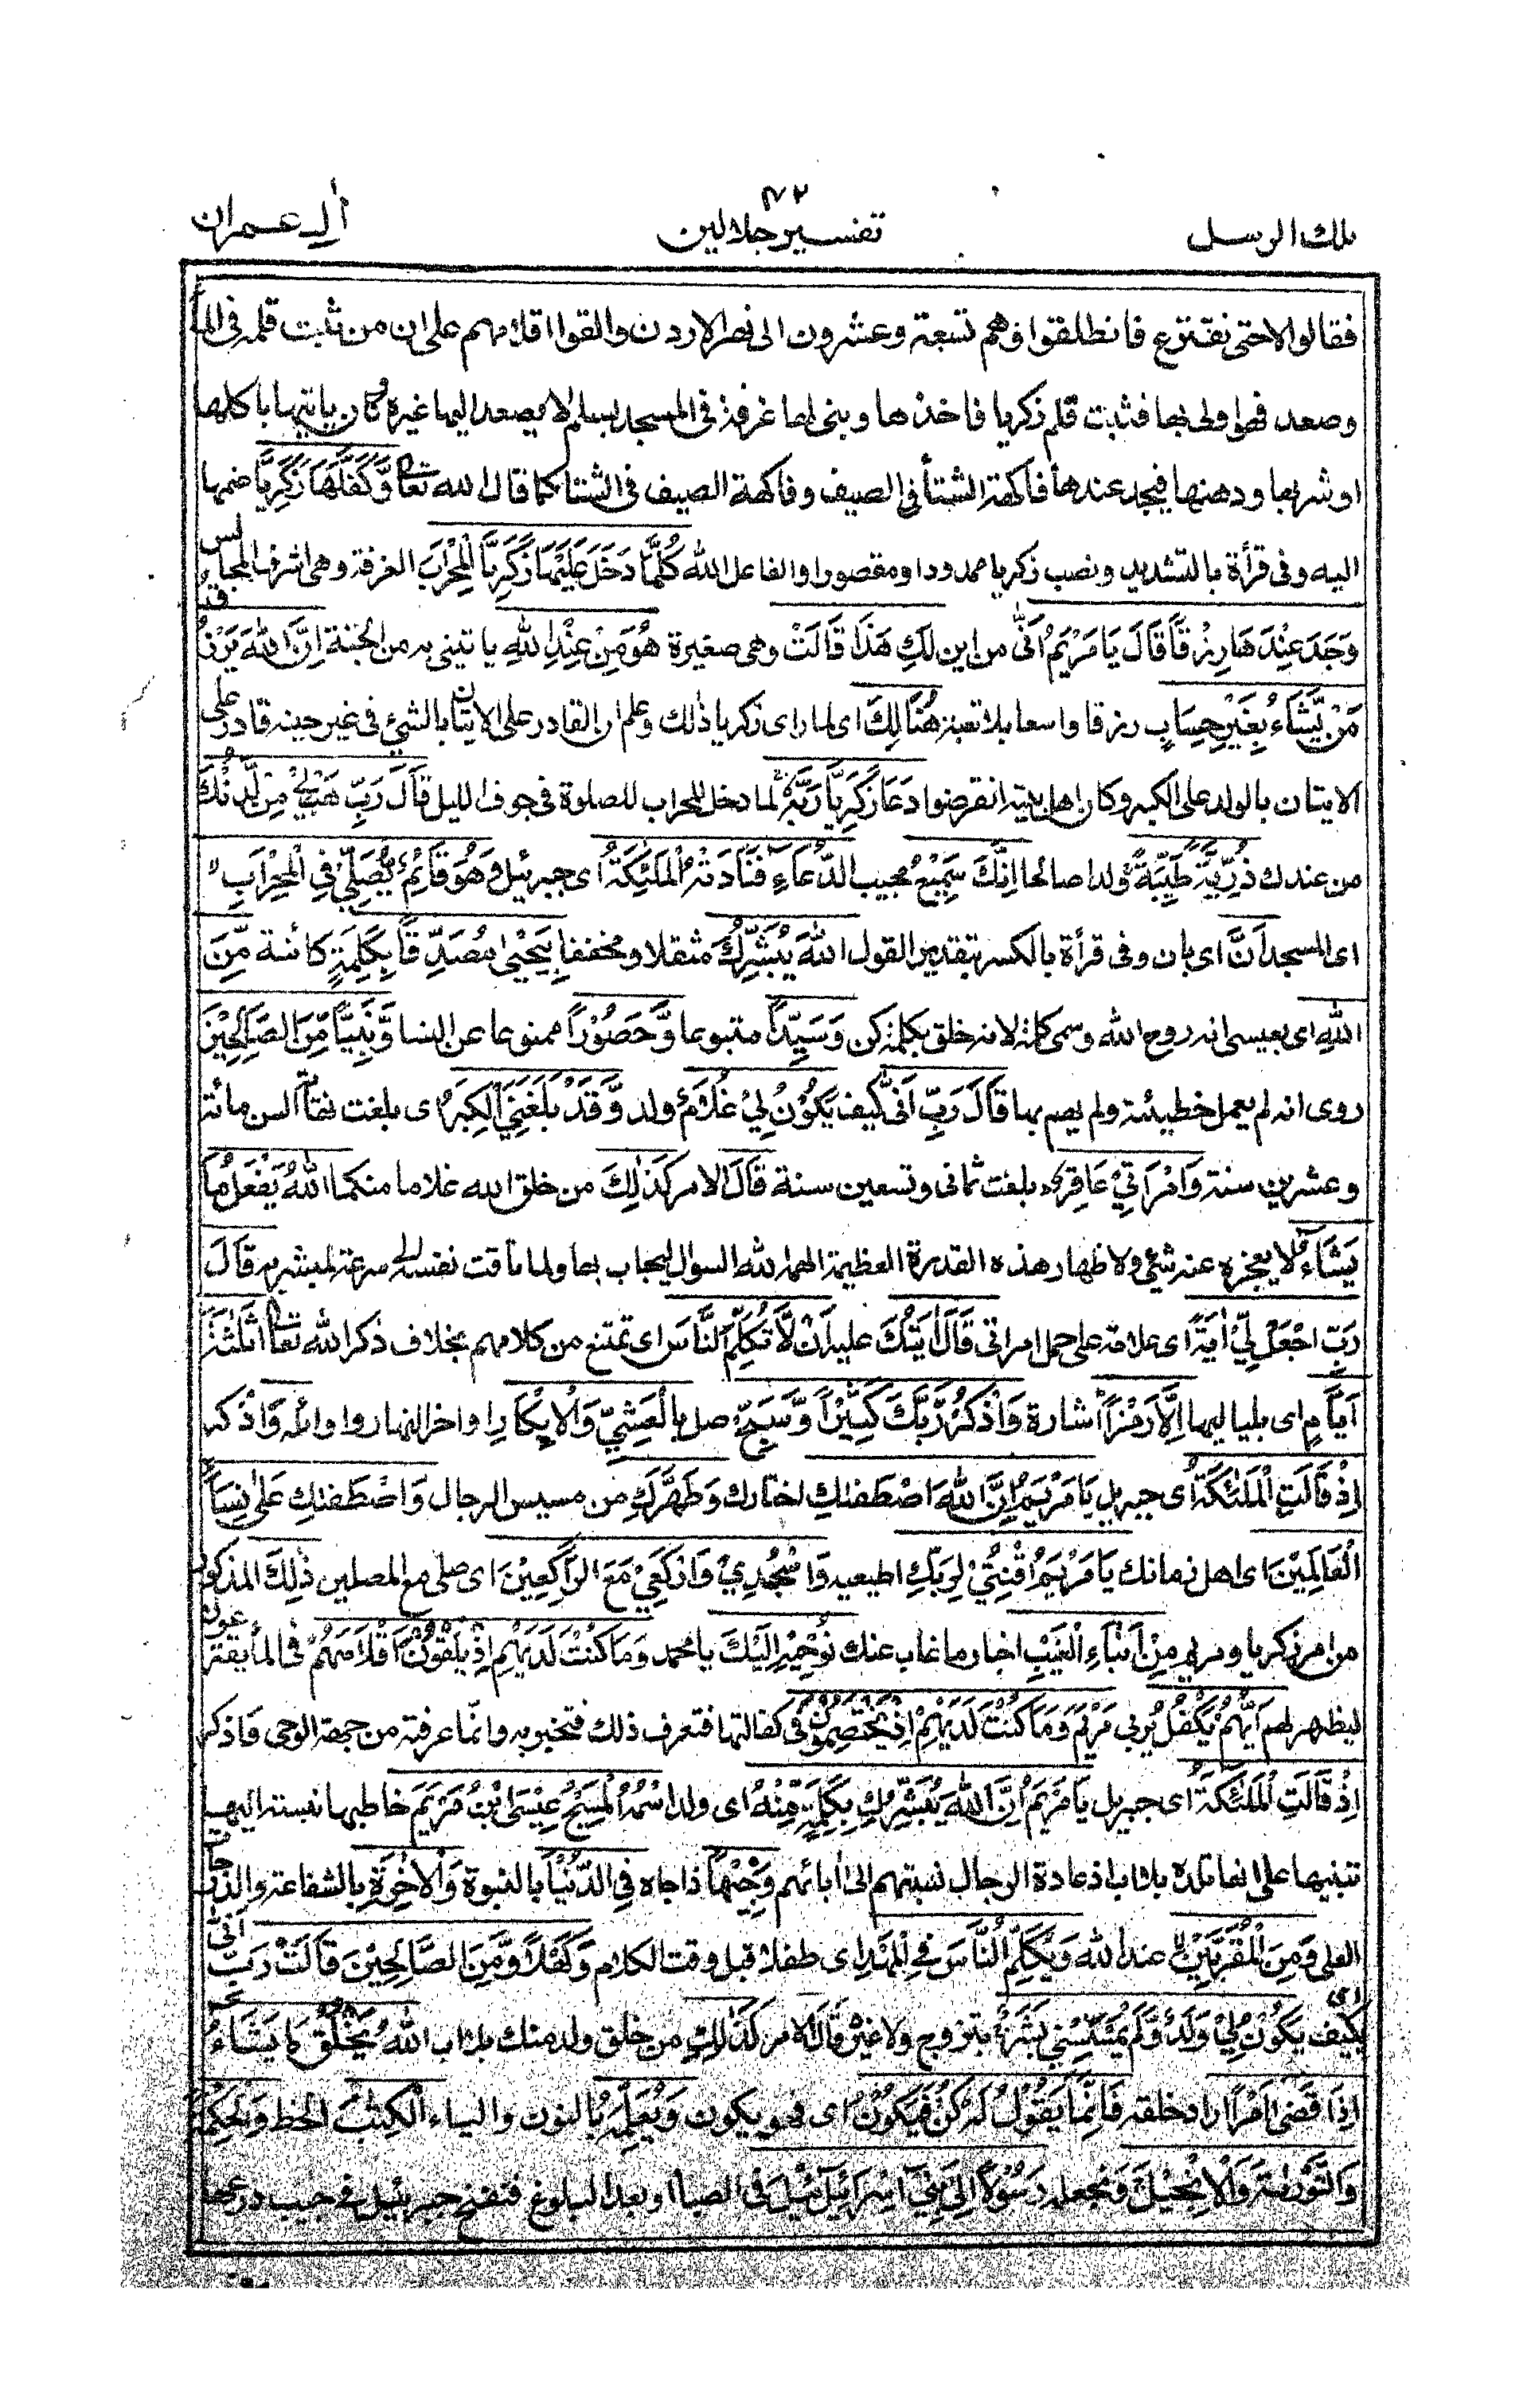 تلك الرسل
٧٢
تفسير جلالين
اٰل عمران
فقالوا لا حتى نقترع فانطلقوا وهم تسعة وعشرون الى نهر الاردن والقوا اقلامهم على ان من ثبت قلمه فى الماء
وصعد فهو اولى بها فثبت قلم زكريا فاخذها وبنى لها غرفة فى المسجد بسلم لا يصعد اليها غيره وكان ياتيها باكلها
وشربها ودهنها فيجد عندها فاكهة الشتاء فى الصيف وفاكهة الصيف فى الشتاء كما قال الله تعالى وَّكَفَّلَهَا زَكَرِيَّا ضمها
اليه وفى قرأة بالتشديد ونصب زكريا ممدودا ومقصورا والفاعل الله كُلَّمَا دَخَلَ عَلَيْهَا زَكَرِيَّا الْمِحْرَابَ الغرفة وهى اشرف المجالس
وَجَدَ عِنْدَهَا رِزْقًا قَالَ يَا مَرْيَمُ اَنّٰى من اين لَكِ هٰذَا قَالَتْ وهى صغيرة هُوَ مِنْ عِنْدِ اللّٰهِ ياتينى به من الجنة اِنَّ اللّٰهَ يَرْزُقُ
مَنْ يَّشَاءُ بِغَيْرِ حِسَابٍ رزقا واسعا بلا تبعة هُنَالِكَ اى لما راى زكريا ذلك وعلم ان القادر على الاتيان بالشئ فى غير حينه قادر على
الاتيان بالولد على الكبر وكان اهل بيته انقرضوا دَعَا زَكَرِيَّا رَبَّهٗ لما دخل المحراب للصلوة فى جوف الليل قَالَ رَبِّ هَبْ لِيْ مِنْ لَّدُنْكَ
من عندك ذُرِّيَّةً طَيِّبَةً ولدا صالحا اِنَّكَ سَمِيْعُ مجيب الدُّعَاءِ فَنَادَتْهُ الْمَلٰئِكَةُ اى جبرئيل وَهُوَ قَائِمٌ يُّصَلِّيْ فِي الْمِحْرَابِ
اى المسجد اَنَّ اى بان وفى قرأة بالكسر بتقدير القول اللّٰهَ يُبَشِّرُكَ مثقلا ومخففا بِيَحْيٰى مُصَدِّقًا بِكَلِمَةٍ كائنة مِّنَ
اللّٰهِ اى بعيسى انه روح الله وسمى كلمة لانه خلق بكلمة كن وَسَيِّدًا متبوعا وَّحَصُوْرًا ممنوعا عن النسا وَّنَبِيًّا مِّنَ الصَّالِحِيْنَ
روى انه لم يعمل خطيئة ولم يهم بها قَالَ رَبِّ اَنّٰى كيف يَكُوْنُ لِيْ غُلَامٌ ولد وَّقَدْ بَلَغَنِيَ الْكِبَرُ اى بلغت نهاية السن مائة
وعشرين سنة وَامْرَاَتِيْ عَاقِرٌ بلغت ثمانى وتسعين سنة قَالَ الامر كَذٰلِكَ من خلق الله غلاما منكما اللّٰهُ يَفْعَلُ مَا
يَشَاءُ لا يعجزه عنه شئ ولاظهار هذه القدرة العظيمة الهمه الله السوال ليجاب بها ولما تاقت نفسه الى سرعة المبشر به قَالَ
رَبِّ اجْعَلْ لِّيْ اٰيَةً اى علامة على حمل امراتى قَالَ اٰيَتُكَ عليه اَنْ لَّا تُكَلِّمَ النَّاسَ اى تمتنع من كلامهم بخلاف ذكر الله تعالى ثَلٰثَةَ
اَيَّامٍ اى بلياليها اِلَّا رَمْزًا اشارة وَاذْكُرْ رَّبَّكَ كَثِيْرًا وَّسَبِّحْ صل بِالْعَشِيِّ وَالْاِبْكَارِ اواخر النهار واوائله وَاذكر
اِذْ قَالَتِ الْمَلٰئِكَةُ اى جبريل يَا مَرْيَمُ اِنَّ اللّٰهَ اصْطَفٰىكِ اختارك وَطَهَّرَكِ من مسيس الرجال وَاصْطَفٰىكِ عَلٰى نِسَاءِ
الْعَالَمِيْنَ اى اهل زمانك يَا مَرْيَمُ اقْنُتِيْ لِرَبِّكِ اطيعيه وَاسْجُدِيْ وَارْكَعِيْ مَعَ الرَّاكِعِيْنَ اى صلى مع المصلين ذٰلِكَ المذكور
من امر زكريا ومريم مِنْ اَنْبَاءِ الْغَيْبِ اخبار ما غاب عنك نُوْحِيْهِ اِلَيْكَ يا محمد وَمَا كُنْتَ لَدَيْهِمْ اِذْ يُلْقُوْنَ اَقْلَامَهُمْ فى الماء يقترعون
ليظهر لهم اَيُّهُمْ يَكْفُلُ يربى مَرْيَمَ وَمَا كُنْتَ لَدَيْهِمْ اِذْ يَخْتَصِمُوْنَ فى كفالتها فتعرف ذلك فتخبر به وانما عرفته من جهة الوحى وَاذكر
اِذْ قَالَتِ الْمَلٰئِكَةُ اى جبريل يَا مَرْيَمُ اِنَّ اللّٰهَ يُبَشِّرُكِ بِكَلِمَةٍ مِّنْهُ اى ولد اسْمُهُ الْمَسِيْحُ عِيْسَى ابْنُ مَرْيَمَ خاطبها بنسبته اليها
تنبيها على انها تلده بلا اب اذ عادة الرجال نسبتهم الى اٰبائهم وَجِيْهًا ذا جاه فِي الدُّنْيَا بالنبوة وَالْاٰخِرَةِ بالشفاعة والدرجات
العلى وَمِنَ الْمُقَرَّبِيْنَ عند الله وَيُكَلِّمُ النَّاسَ فِي الْمَهْدِ اى طفلا قبل وقت الكلام وَكَهْلًا وَّمِنَ الصَّالِحِيْنَ قَالَتْ رَبِّ اَنّٰى
كيف يَكُوْنُ لِيْ وَلَدٌ وَّلَمْ يَمْسَسْنِيْ بَشَرٌ بتزوج ولا غيره قَالَ الامر كَذٰلِكِ من خلق ولد منك بلا اب اللّٰهُ يَخْلُقُ مَا يَشَاءُ
اِذَا قَضٰى اَمْرًا اراد خلقه فَاِنَّمَا يَقُوْلُ لَهٗ كُنْ فَيَكُوْنُ اى فهو يكون وَيُعَلِّمُهٗ بالنون والياء الْكِتٰبَ الخط وَالْحِكْمَةَ
وَالتَّوْرٰىةَ وَالْاِنْجِيْلَ وَنجعله رَسُوْلًا اِلٰى بَنِيْ اِسْرَائِيْلَ فى الصبا او بعد البلوغ فنفخ جبرئيل فى جيب درعها